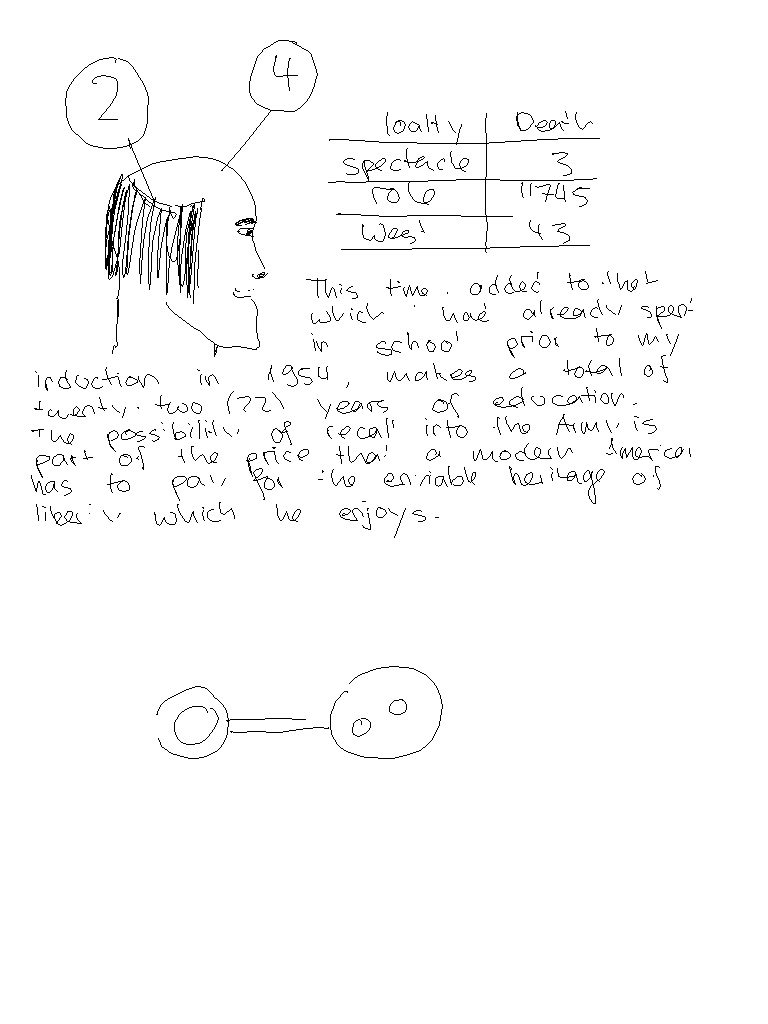 2
4
loalty Death
spectacle 3
role 11745
West 43
This time added to that
which had already spent
in school prior to my
induction in 1954, makes a total of
twenty-two (22) years of education.
The possibility of recall into the Army is
part of the price that a modern American
has to pay for the enviable heritage of
liberty which he enjoys.